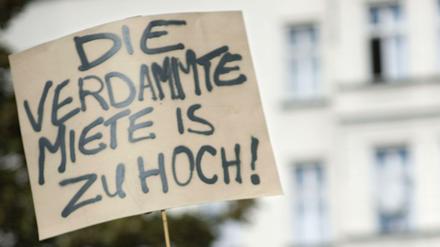 DIE
VERDAMMTE
MIETE IS
ZU HOCH!